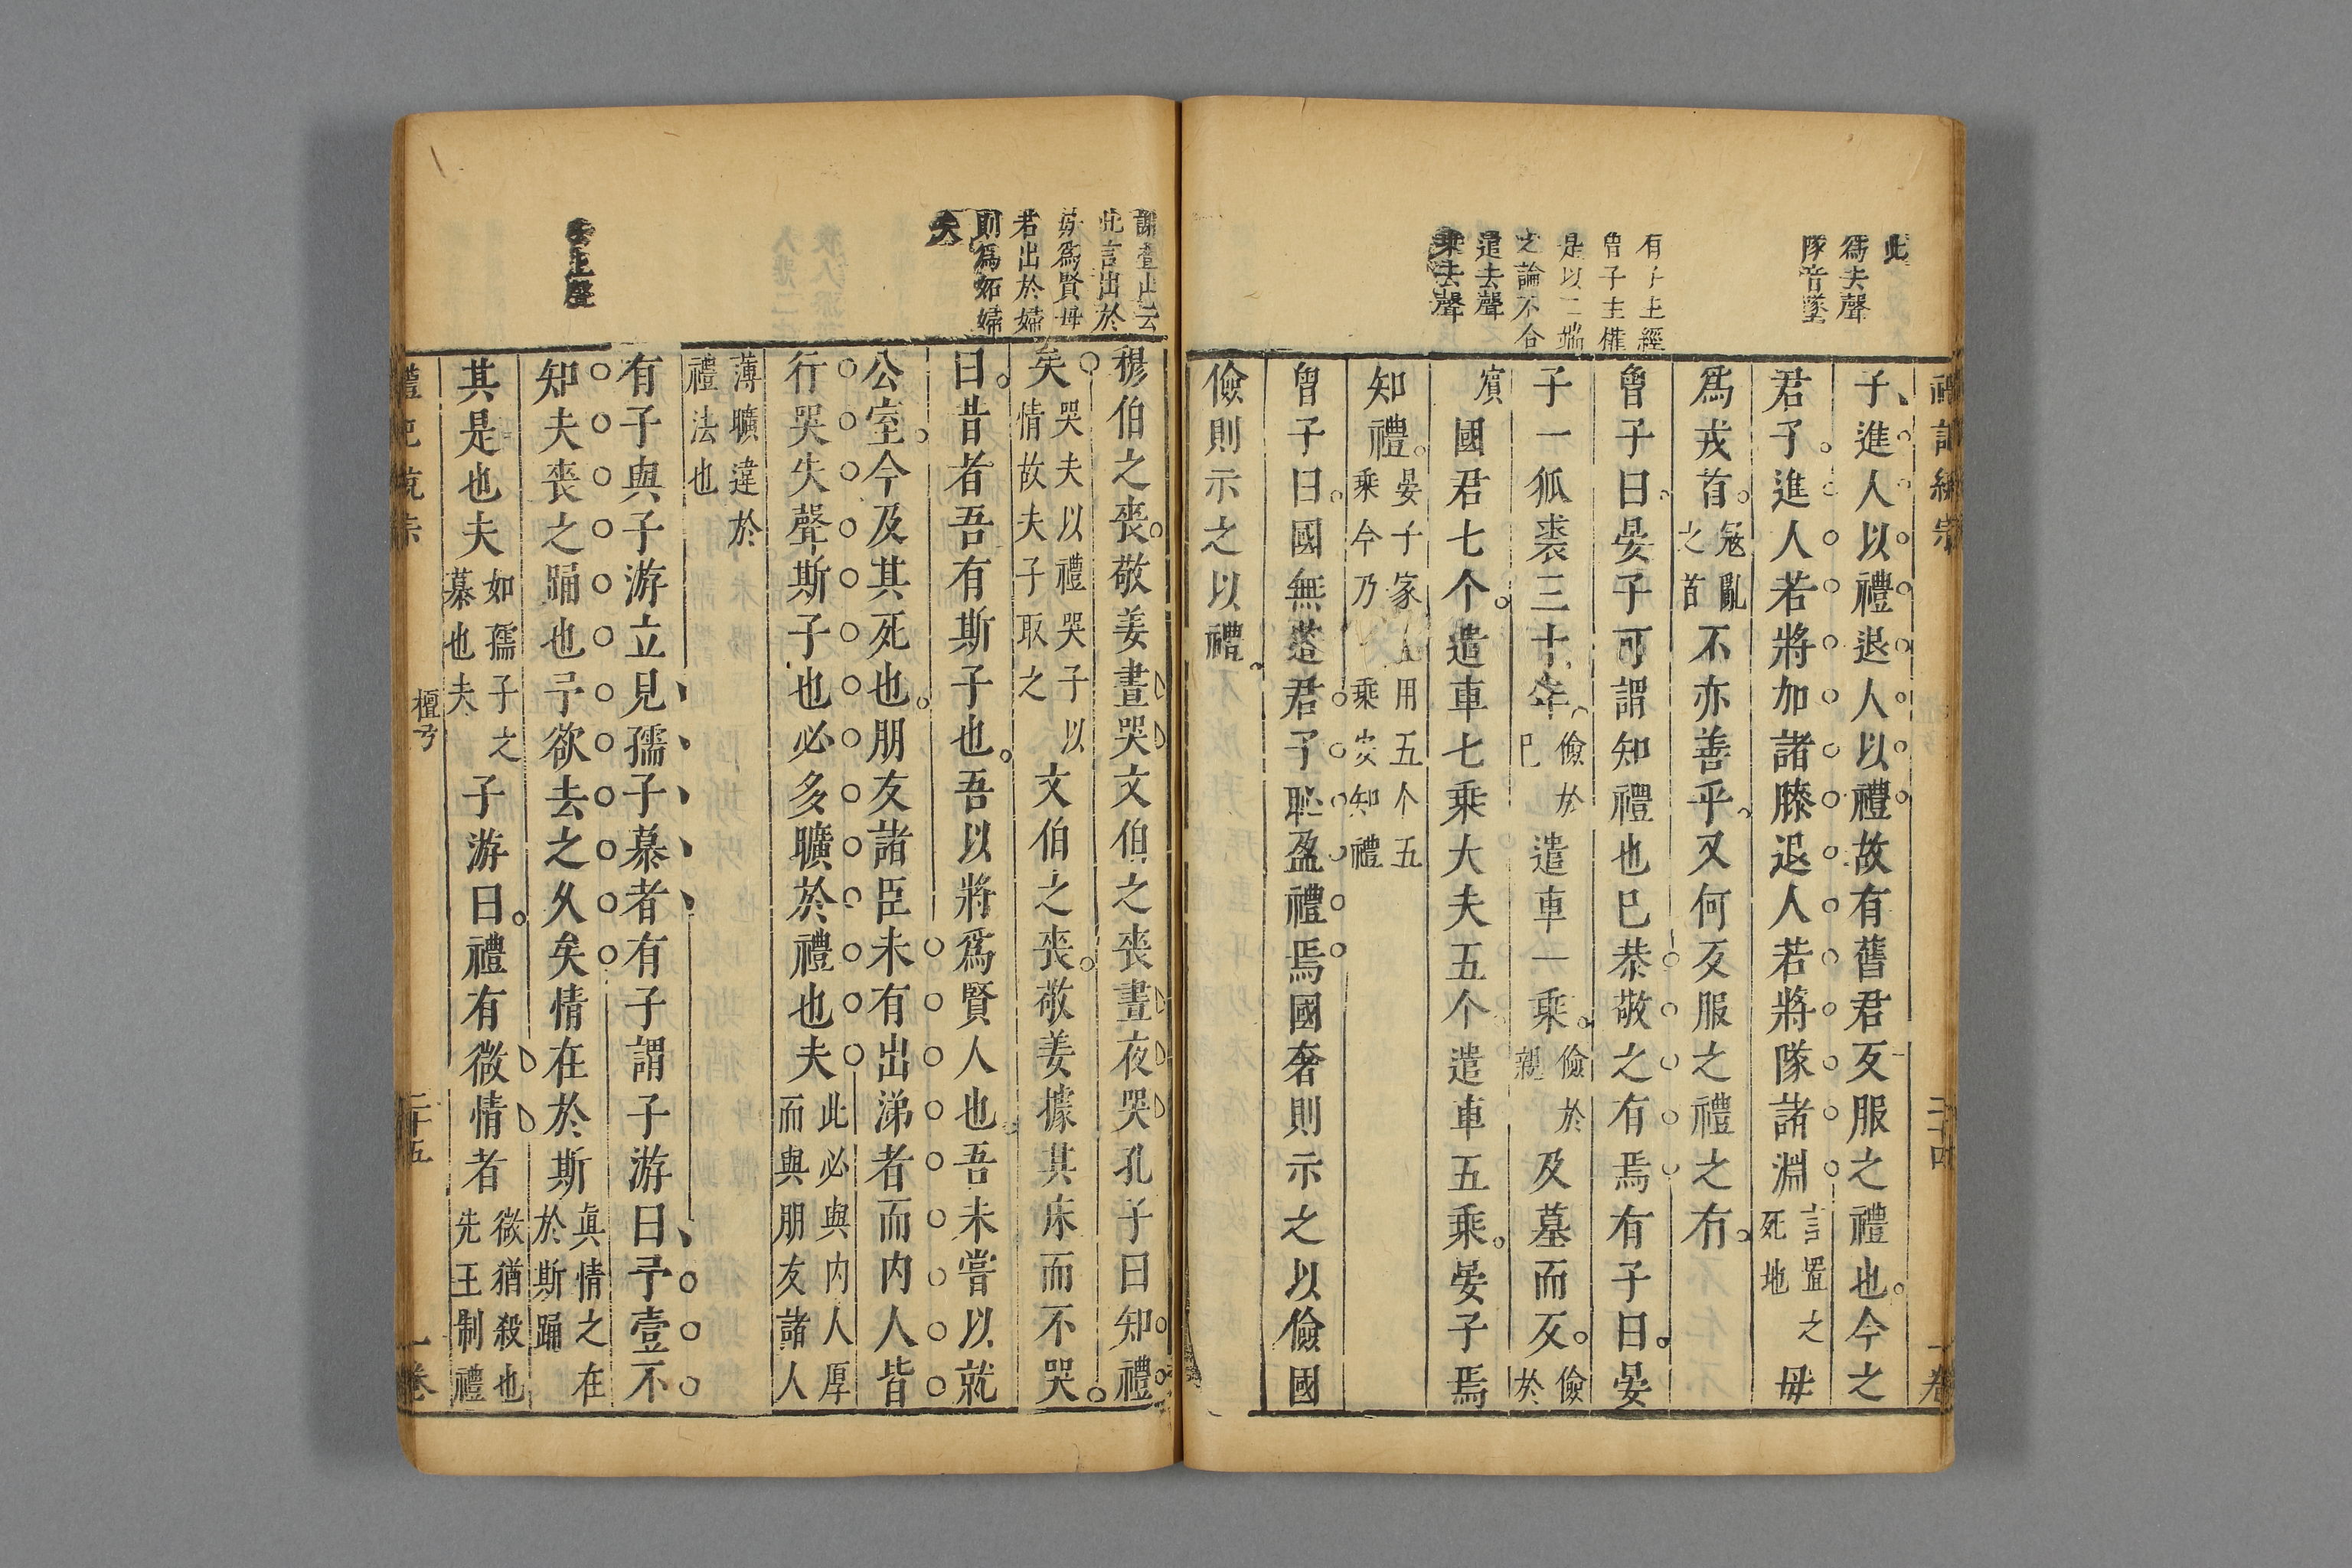 此
爲去聲
隊音墜
有子主經
曾子主權
是以二端
之論不合
遣去聲
乘去聲
子進人以禮退人以禮故有舊君反服之禮也今之
君子進人若將加諸膝退人若將隊諸淵言置之死地毋
爲戎首寇亂之首不亦善乎又何反服之禮之有
曾子曰晏子可謂知禮也已恭敬之有焉有子曰晏
子一狐裘三十年儉於已遣車一乘儉於親及墓而反儉於
賓國君七个遣車七乘大夫五个遣車五乘晏子焉
知禮晏子家用五个五乘今乃乘安知禮
曾子曰國無道君子恥盈禮焉國奢則示之以儉國
儉則示之以禮
二十四
一卷
謝疊山云
此言出於
母爲賢母
若出於婦
則爲妬婦
矣
去上聲
穆伯之喪敬姜晝哭文伯之喪晝夜哭孔子曰知禮
矣哭夫以禮哭子以情故夫子取之文伯之喪敬姜據其床而不哭
曰昔者吾有斯子也吾以將爲賢人也吾未嘗以就
公室今及其死也朋友諸臣未有出涕者而内人皆
行哭失聲斯子也必多曠於禮也夫此必與内人厚而與朋友諸人
薄曠違於禮法也
有子與子游立見孺子慕者有子謂子游曰予壹不
知夫喪之踊也予欲去之久矣情在於斯眞情之在於斯踊
其是也夫如孺子之慕也夫子游曰禮有微情者微猶殺也先王制禮
檀弓
二十五
一卷